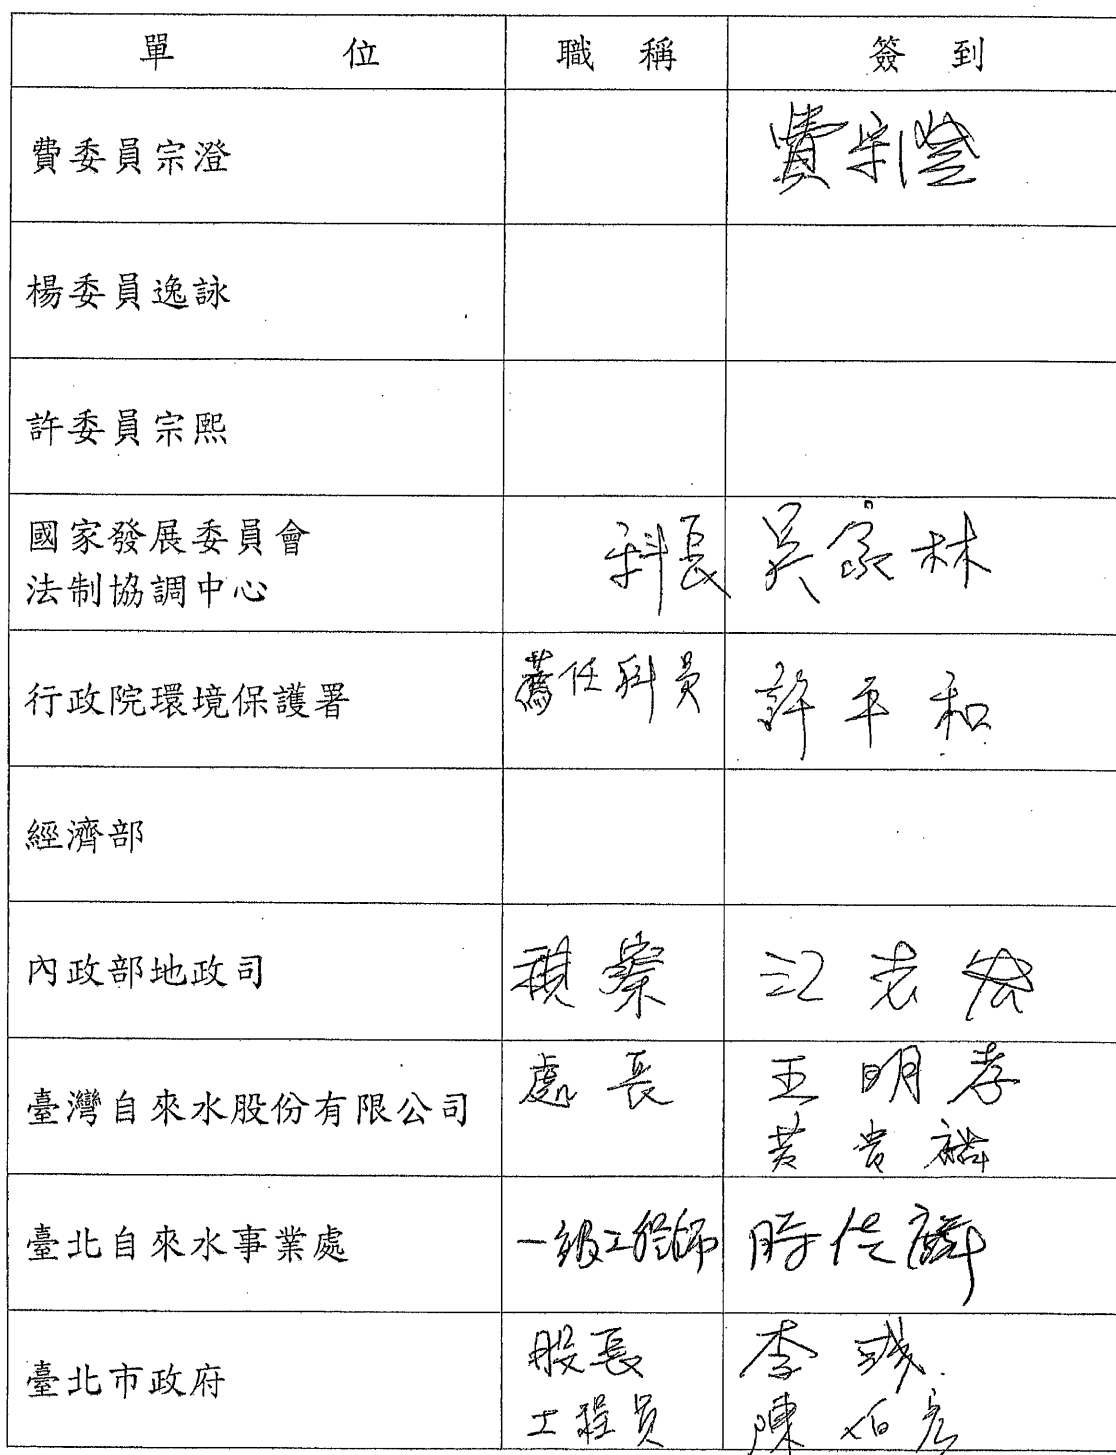 單位 職稱 簽到
費委員宗澄 費宗澄
楊委員逸詠
許委員宗熙
國家發展委員會 科長 吳家林
法制協調中心
行政院環境保護署 薦任科員 許平和
經濟部
內政部地政司 視察 江志宏
臺灣自來水股份有限公司 處長 王明孝
黃
臺北自來水事業處 一級工程師 時佳麟
臺北市政府 股長 李
工程員 陳柏彥